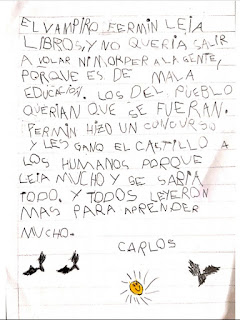 EL VAMPIRO FERMIN LEIA
LIBROS Y NO QUERIA SALIR
A VOLAR NI MORDER A LA GENTE,
PORQUE ES DE MALA
EDUCACION. LOS DEL PUEBLO
QUERIAN QUE SE FUERAN.
FERMIN HIZO UN CONCURSO
Y LES GANO EL CASTILLO A
LOS HUMANOS PORQUE
LEIA MUCHO Y SE SABIA
TODO. Y TODOS LEYERON
MAS PARA APRENDER
MUCHO.
CARLOS